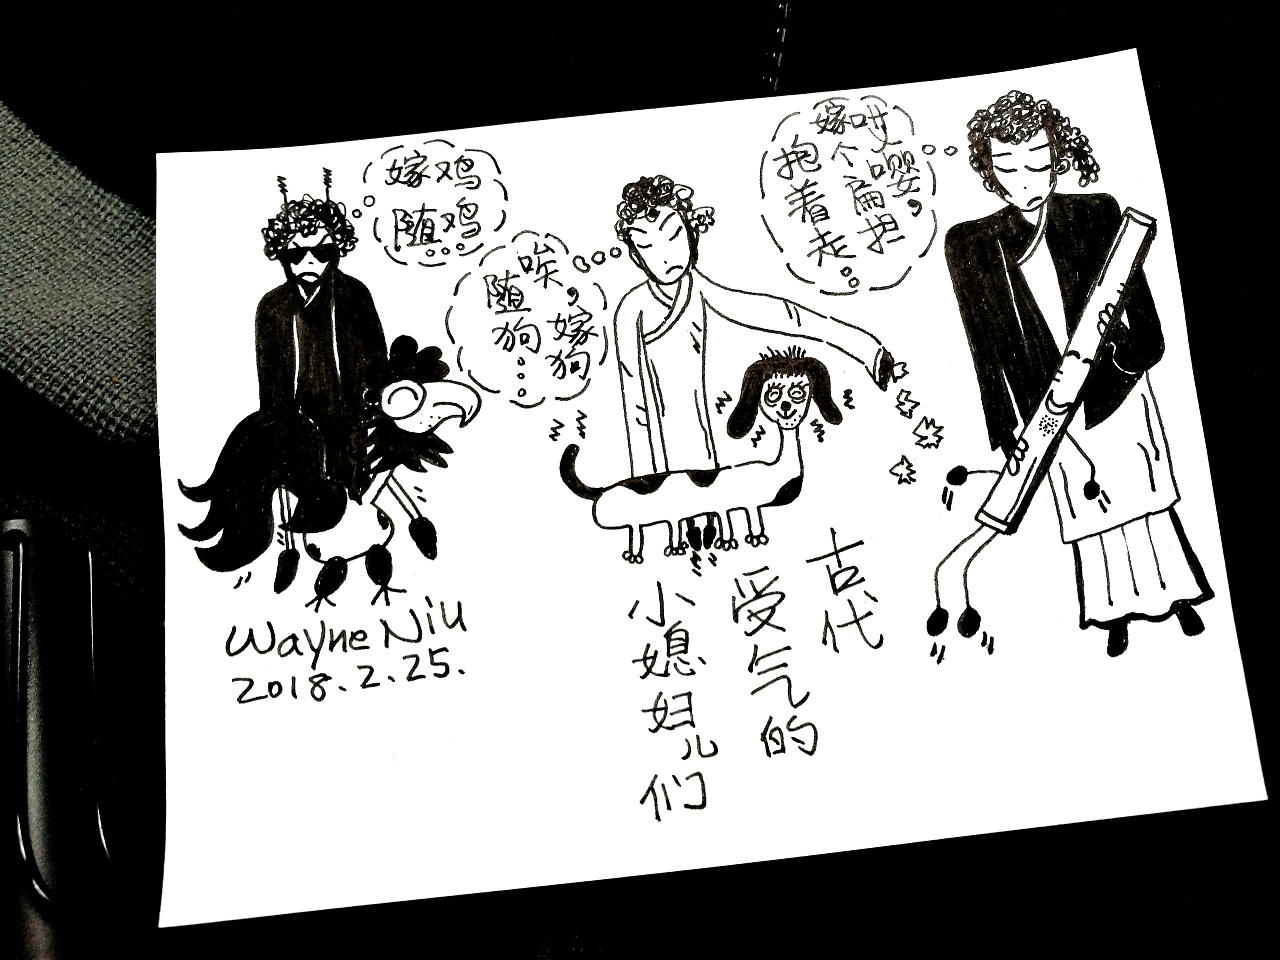 嫁鸡
随鸡...
唉，嫁狗
随狗...
哎嘤，
嫁个扁担
抱着走...
古代
受气的
小媳妇儿们
Wayne Niu
2018.2.25.